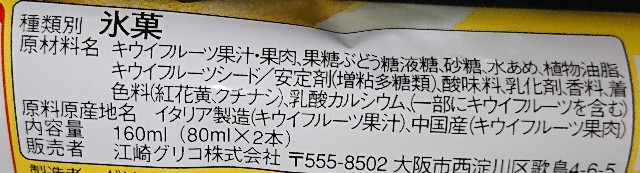 種類別 氷菓
原材料名 キウイフルーツ果汁・果肉、果糖ぶどう糖液糖、砂糖、水あめ、植物油脂、
キウイフルーツシード／安定剤(増粘多糖類)、酸味料、乳化剤、香料、着
色料(紅花黄、クチナシ)、乳酸カルシウム、(一部にキウイフルーツを含む)
原料原産地名 イタリア製造(キウイフルーツ果汁)、中国産(キウイフルーツ果肉)
内容量 160ml (80ml×2本)
販売者 江崎グリコ株式会社 〒555-8502 大阪市西淀川区歌島4-6-5